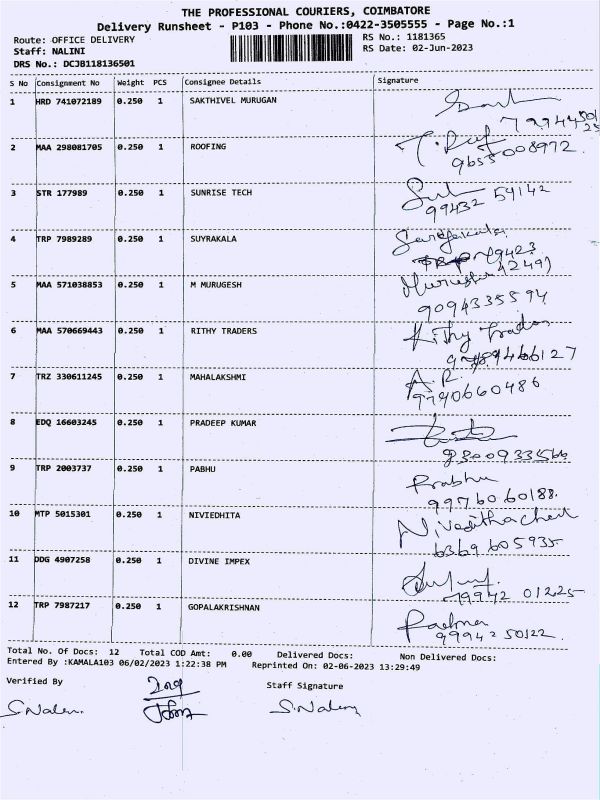 THE PROFESSIONAL COURIERS, COIMBATORE
Delivery Runsheet - P103 - Phone No.:0422-3505555 - Page No.:1
Route: OFFICE DELIVERY
Staff: NALINI
DRS No.: DCJB118136501
RS No.: 1181365
RS Date: 02-Jun-2023
S No Consignment No Weight PCS Consignee Details Signature
1 HRD 741072189 0.250 1 SAKTHIVEL MURUGAN
2 MAA 298081705 0.250 1 ROOFING
9655008972
3 STR 177989 0.250 1 SUNRISE TECH
99432 54142
4 TRP 7989289 0.250 1 SUYRAKALA
5 MAA 571038853 0.250 1 M MURUGESH
9094335594
6 MAA 570669443 0.250 1 RITHY TRADERS
Rithy Traders
7 TRZ 330611245 0.250 1 MAHALAKSHMI
A.R.
9790660486
8 EDQ 16603245 0.250 1 PRADEEP KUMAR
9 TRP 2003737 0.250 1 PABHU
Prabhu
99760 60188.
10 MTP 5015301 0.250 1 NIVIEDHITA
6369 605935
11 DDG 4907258 0.250 1 DIVINE IMPEX
79942 01225
12 TRP 7987217 0.250 1 GOPALAKRISHNAN
99942 50122.
Total No. Of Docs: 12 Total COD Amt: 0.00 Delivered Docs: Non Delivered Docs:
Entered By :KAMALA103 06/02/2023 1:22:38 PM Reprinted On: 02-06-2023 13:29:49
Verified By Staff Signature
S.Nalini S.Nalini